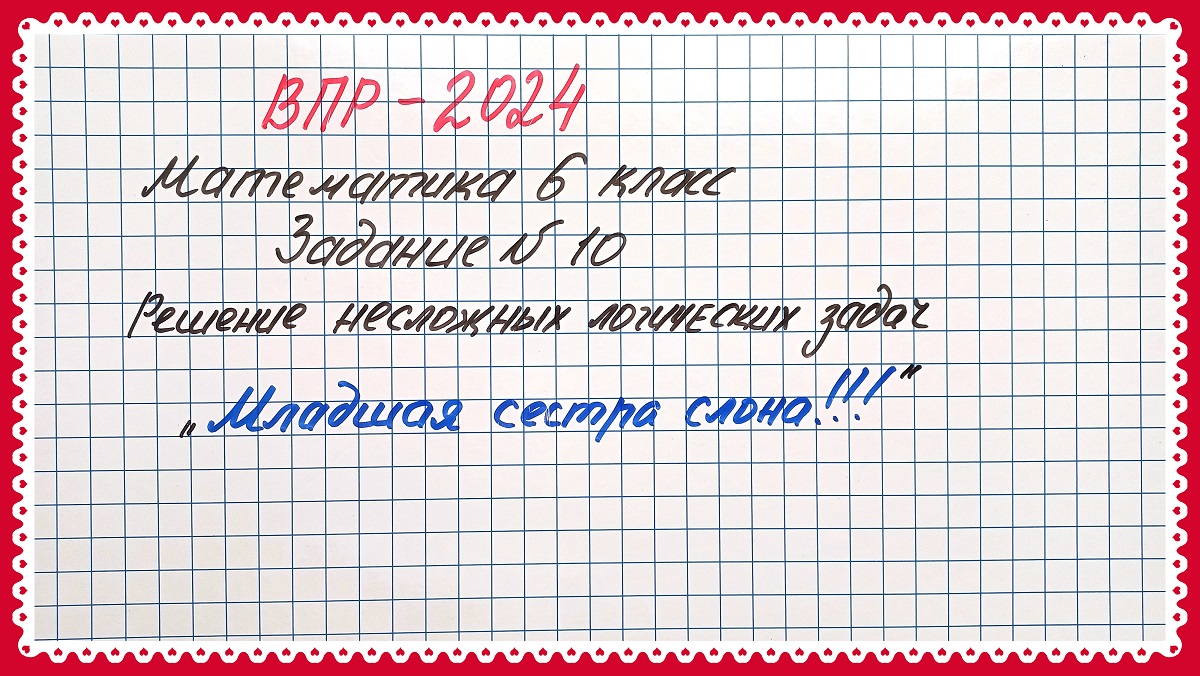 ВПР - 2024
Математика 6 класс
Задание N 10
Решение несложных логических задач
„Младшая сестра слона!!!"